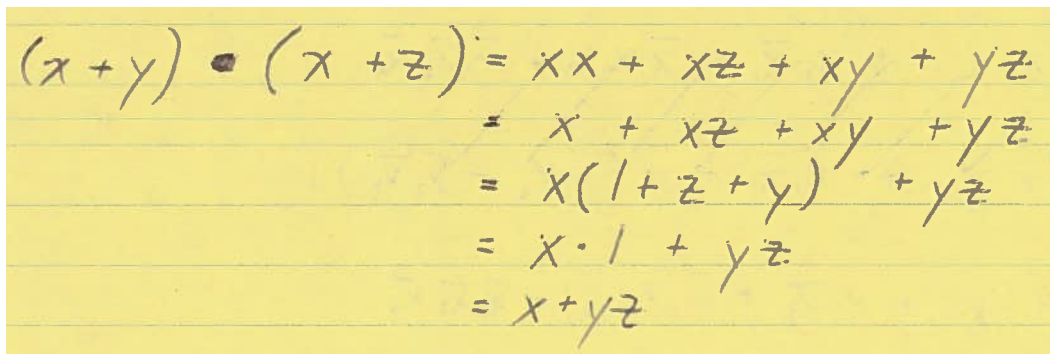 (x + y) • (x + z) = xx + xz + xy + yz
= x + xz + xy + yz
= x(1 + z + y) + yz
= x · 1 + yz
= x + yz